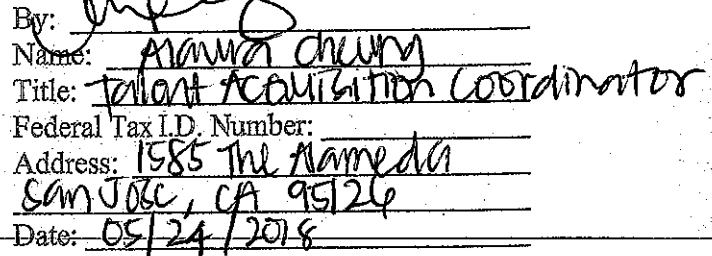 By:
Name: Alaura Cheung
Title: Talent Acquisition Coordinator
Federal Tax I.D. Number:
Address: 1585 The Alameda
San Jose, CA 95126
Date: 05/24/2018